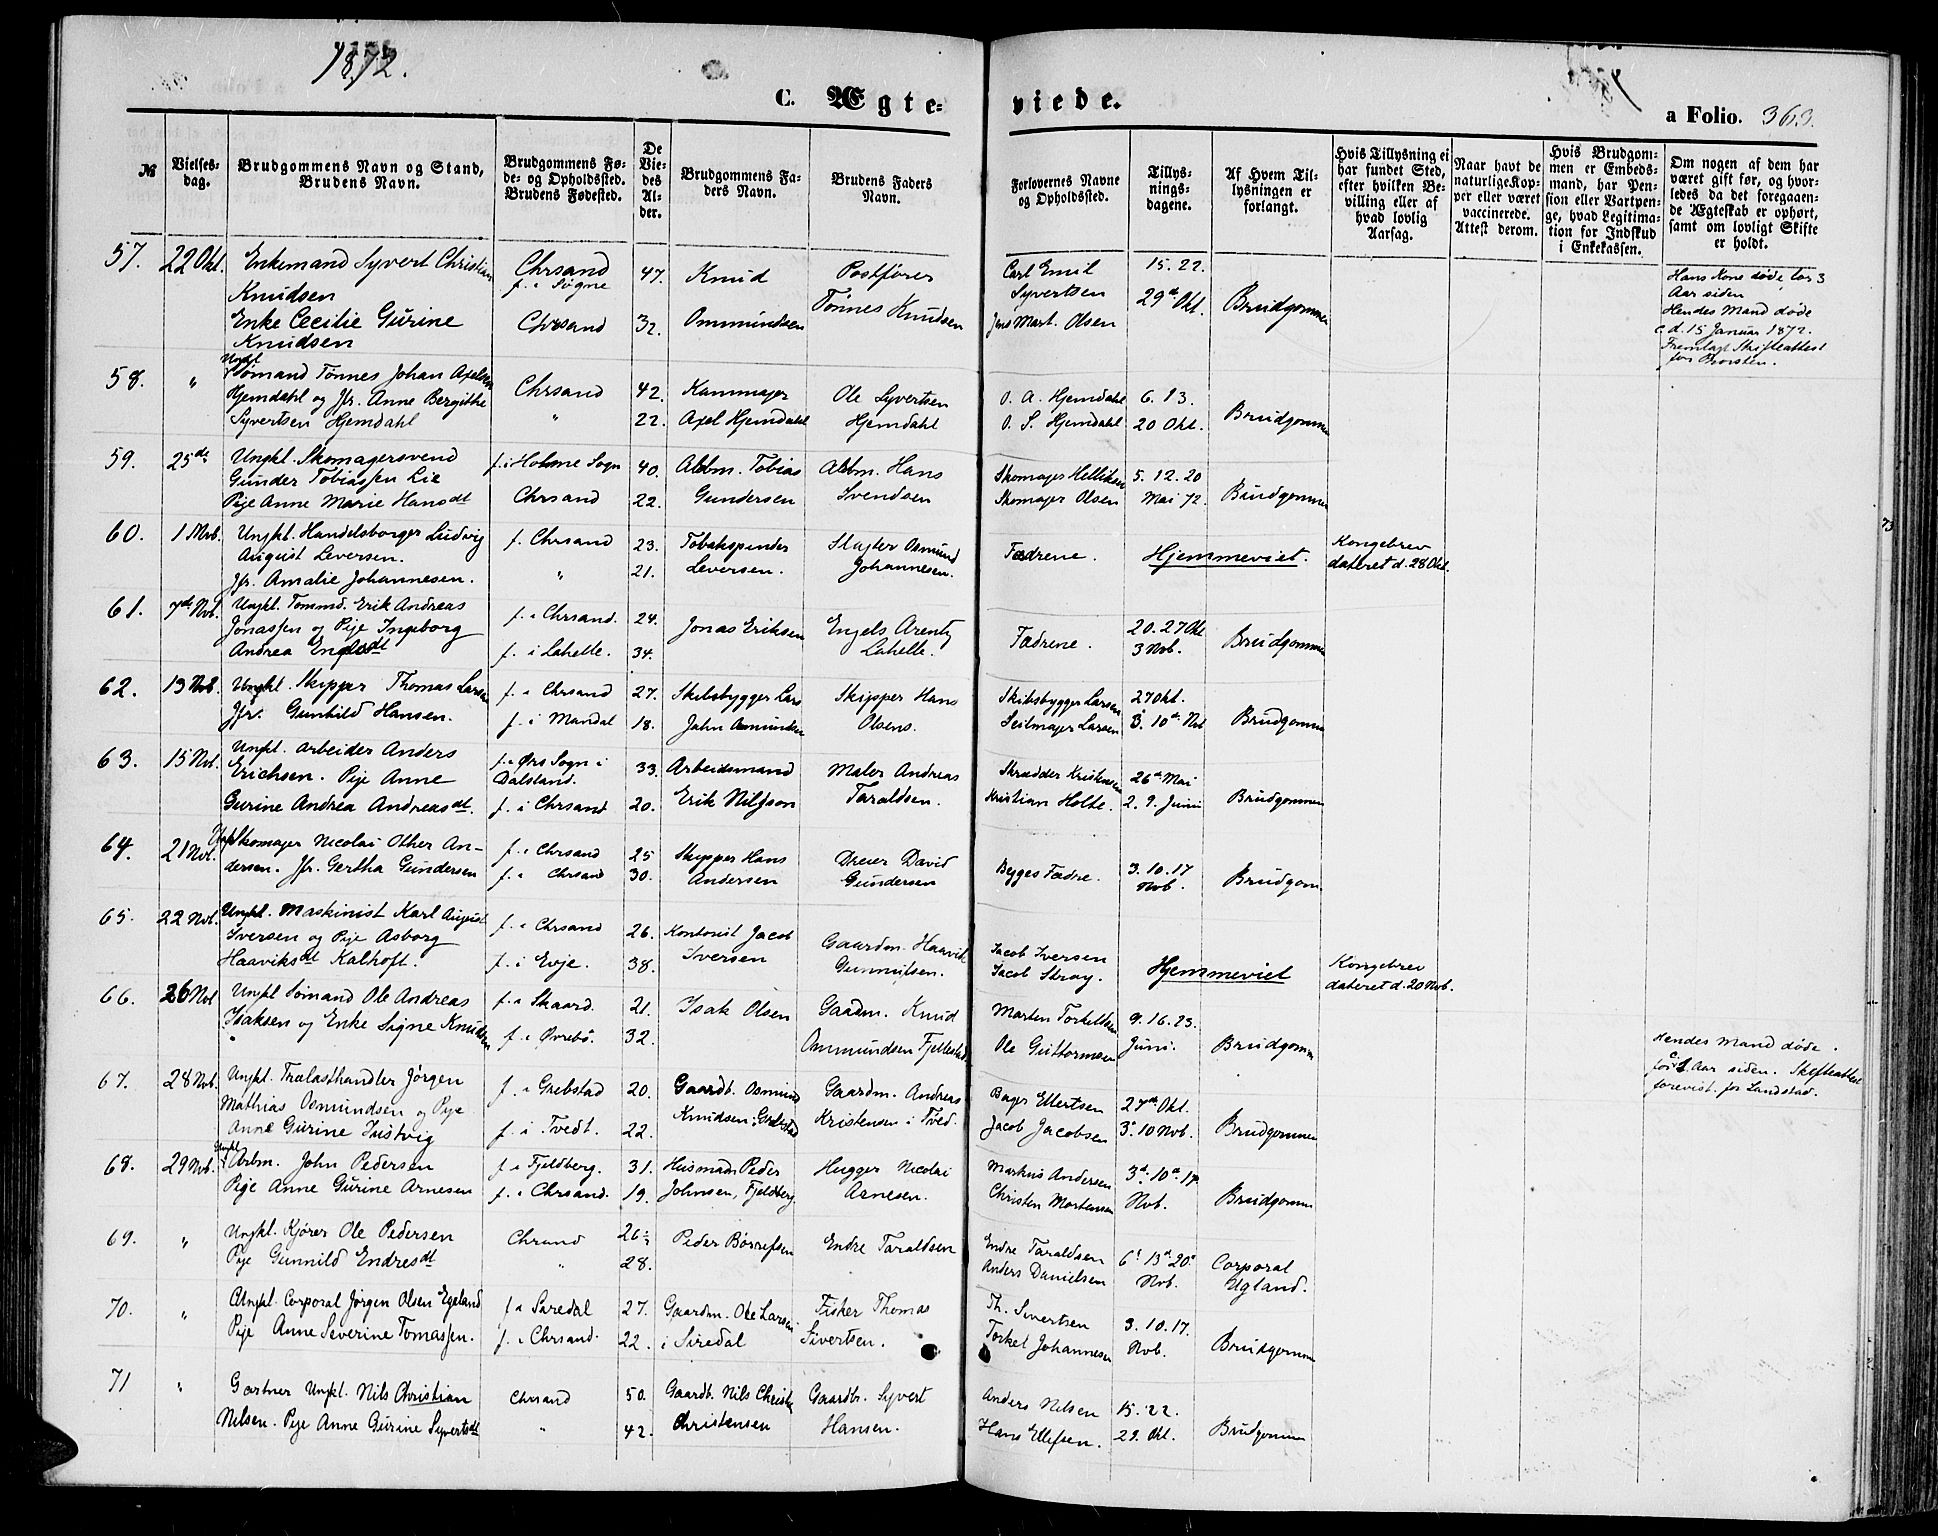 1872.
C. Ægteviede.
a Folio. 363.
№ | Vielsesdag. | Brudgommens Navn og Stand, Brudens Navn. | Brudgommens Føde- og Opholdssted. Brudens Fødested. | De Viedes Alder. | Brudgommens Faders Navn. | Brudens Faders Navn. | Forlovernes Navne og Opholdssted. | Tillysningsdagene. | Af Hvem Tillysningen er forlangt. | Hvis Tillysning ei har fundet Sted, efter hvilken Bevilling eller af hvad lovlig Aarsag. | Naar havt de naturlige Kopper eller været vaccinerede. Attest derom. | Hvis Brudgommen er Embedsmand, har Pension eller Vartpenge, hvad Legitimation for Indskud i Enkekassen. | Om nogen af dem har været gift før, og hvorledes da det foregaaende Ægteskab er ophørt, samt om lovligt Skifte er holdt.
57. 22 Okt. Enkemand Syvert Christian Chrsand 47. Knud Postfører Carl Emil 15. 22.
Knudsen f. i Søgne Tønnes Knudsen Syvertsen 29de Okt. Brudgommen
Enke Cecilie Gurine Chrsand 32. Ommundsen Jens Mart. Olsen
Knudsen
Hans Kone døde for 3
Aar siden
Hendes Mand døde
d. 15 Januar 1872.
Fremlagt Skifteattest
58. " Ungkl Sømand Tønnes Johan Axelsen Chrsand 42. Kammager Ole Syvertsen O. A. Hjemdahl 6. 13.
Hjemdahl og Jfr. Anne Bergithe " 22. Axel Hjemdahl Hjemdahl O. S. Hjemdahl 20 Okt. Brudgommen
Syvertsen Hjemdahl
59. 25de Ungkl. Skomagersvend f. i Holme Sogn 40. Arbm. Tobias Arbm. Hans Skomager Helliksen 5. 12. 20
Gunder Tobiassen Lie Chrsand 22. Gundersen Svendsen Skomager Olsen Mai 72. Brudgommen
Pige Anne Marie Hansdt
60. 1 Nvb. Ungkl. Handelsborger Ludvig f. Chrsand 23. Tobakspinder Slagter Osmund Fædrene. Hjemmeviet. Kongebrev
August Leversen. " 21. Leversen. Johannesen. dateret d. 28 Okt.
Jfr. Amalie Johannesen.
61. 7de Nvb. Ungkl. Tommd. Erik Andreas f. i Chrsand. 24. Jonas Eriksen Engels Arentz Fædrene. 20. 27 Okt Brudgommen
Jonassen og Pige Ingeborg f. i Lahelle. 34. Lahelle. 3 Nvb.
Andrea Engelsdt
62. 13 Nvb. Ungkl. Skipper Thomas Larsen f. i Chrsand 27. Skibsbygger Lars Skipper Hans Skibsbygger Larsen 27 Okt.
Jfr. Gunhild Hansen. f. i Mandal 18. Jahn Osmundsen Olsens. Seilmager Larsen 3. 10de Nvb Brudgommen
63. 15 Nvb. Ungkl. arbeider Anders f. i Ørs Sogn i 33. Arbeidsmand Maler Andreas Skrædder Kristensen 26de Mai
Erichsen. Pige Anne Dalsland. Erik Nilsson Taraldsen. Kristian Holte. 2. 9. Juni Brudgommen
Gurine Andrea Andreasdt. f. i Chrsand 20.
64. 21 Nvb. Ungkl Skomager Nicolai Other An- f. i Chrsand 25 Skipper Hans Dreier David Begges Fædre. 3. 10. 17 Brudgom.
dersen. Jfr. Gertha Gundersen f. i Chrsand 30. Andersen Gundersen Nvb.
65. 22 Nvb. Ungkl. Maskinist Karl August f. i Chrsand 26. Kontorist Jacob Gaardm. Haavik Jacob Iversen Hjemmeviet Kongebrev
Iversen og Pige Asborg f. i Evje. 38. Iversen Gunnulsen. Jacob Stray. dateret d. 20 Nvb.
Haaviksdt Kalhoft.
66. 26 Nvb Ungkl Sømand Ole Andreas f. i Skaard. 21. Isak Olsen Gaadm. Knud Marten Torkelsen 9. 16. 23.
Isaksen og Enke Signe Knudsen f. i Øvrebø. 32. Ommundsen Fjellestad Ole Guttormsen Juni. Brudgomm
Hendes Mand døde
for 2 Aar siden. Skifteattest
forevist. for Landstad.
67. 28 Nvb. Ungkl. Trælasthandler Jørgen f. i Grebstad 20. Gaardb. Osmund Gaardm. Andreas Bager Ellertsen 27de Okt.
Mathias Osmundsen og Pige f. i Tvedt. 22. Knudsen i Grebstad Kristensen i Tved. Jacob Jacobsen 3. 10 Nvb. Brudgommen
Anne Gurine Justvig
68. 29 Nvb. Ungkl Arbm. John Pedersen f. i Fjeldberg. 31. Husmadn Peder Hugger Nicolai Markus Andersen 3d. 10de 17
Pige Anne Gurine Arnesen f. i Chrsand. 19. Johnsen, Fjeldberg. Arnesen. Christen Mortensen Nvb. Brudgommen
69. " Ungkl. Kjører Ole Pedersen Chrsand 26 Peder Børresen Endre Taraldsen Endre Taraldsen 6. 13. 20. Corporal
Pige Gunnild Endresdt " 28. Anders Danielsen Nvb. Ugland.
70. " Ungkl. Corporal Jørgen Olsen Egeland f. i Siredal 27. Gaardm. Ole Larsen Fisker Thomas Th. Sivertsen 3. 10. 17.
Pige Anne Severine Tomassen. f. i Chrsand. 22. i Siredal Sivertsen. Torkel Johannesen Nvb. Brudgommen
71 " Gartner Ungkl. Nils Christian Chrsand 50. Gaardb. Nils Christen Gaardbr. Syvert Anders Nilsen 15. 22.
Nilsen. Pige Anne Gurine Syvertsdt " 42. Christensen Hansen. Hans Ellefsen. 29. Okt. Brudgommen